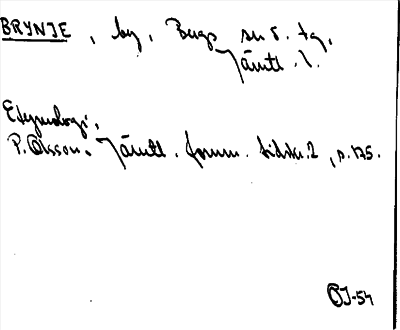 BRYNJE, by, Bergs sn o. tg,
Jämtl. l.
Etymologi,
P. Olsson. Jämtl. fornm. tidskr. 2, s. 175.
OJ-54